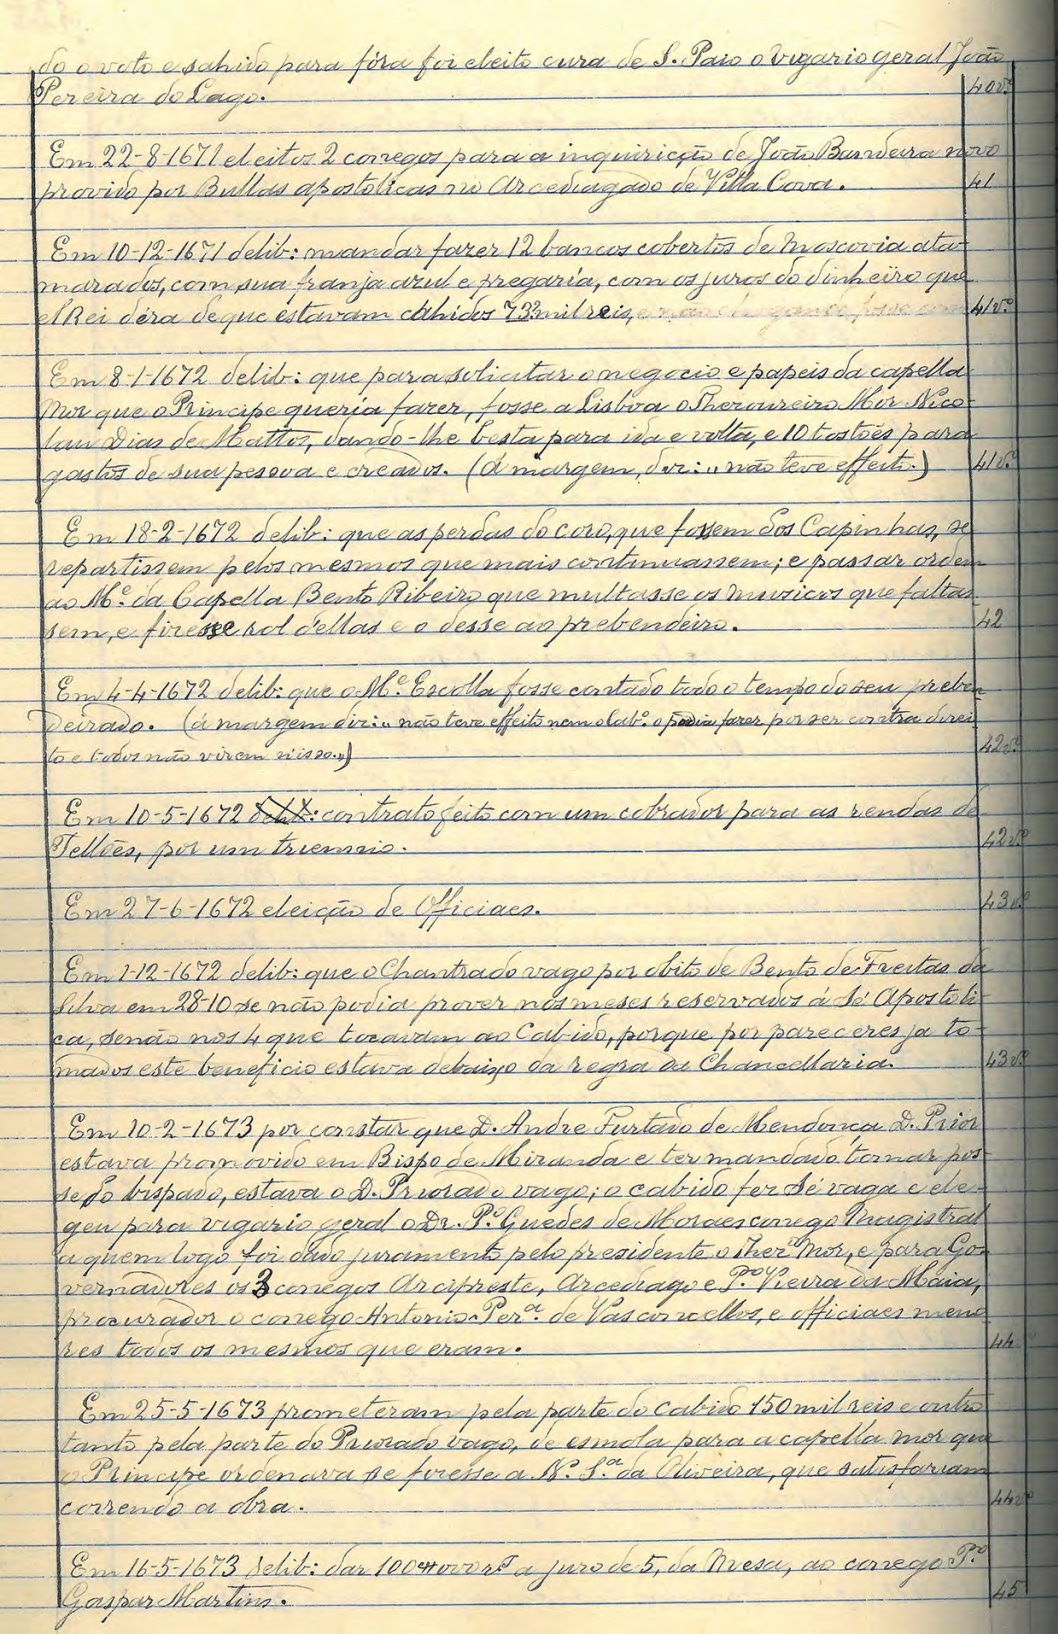 do o voto e sahido para fóra foi eleito cura de S. Paio o vigario geral João
Pereira do Lago. 40vº
Em 22-8-1671 eleitos 2 conegos para a inquirição de João Bandeira novo
provido por Bullas apostolicas no Arcediagado de Villa Cova. 41
Em 10-12-1671 delib: mandar fazer 12 bancos cobertos de Moscovia ata-
marados, com sua franja azul e pregaria, com os juros do dinheiro que
elRei déra de que estavam cahidos 73 mil reis, e não chegando fosse com 41vº
Em 8-1-1672 delib: que para solicitar o negocio e papeis da capella
Mor que o Principe queria fazer, fosse a Lisboa o Thezoureiro Mor Nico-
lau Dias de Mattos, dando-lhe besta para ida e volta, e 10 tostões para
gastos de sua pessoa e creados. (Á margem, diz: „não teve effeito.) 41vº
Em 18-2-1672 delib: que as perdas do coro, que fossem dos Capinhas, se
repartissem pelos mesmos que mais continuassem; e passar ordem
ao Mº da Capella Bento Ribeiro que multasse os musicos que faltas-
sem, e fizesse rol d'ellas e o desse ao prebendeiro. 42
Em 4-4-1672 delib: que o Mº Escolla fosse contado todo o tempo do seu preben-
deirado. (á margem diz: „não teve effeito nem o Cabº o podia fazer por ser contra direi-
to e todos não virem n'isso.„) 42vº
Em 10-5-1672 delib: contrato feito com um cobrador para as rendas de
Tellões, por um triennio. 42vº
Em 27-6-1672 eleição de Officiaes. 43vº
Em 1-12-1672 delib: que o Chantrado vago por obito de Bento de Freitas da
Silva em 28-10 se não podia prover nos meses reservados á Sé Apostoli-
ca, senão nos 4 que tocavam ao Cabido, porque por pareceres ja to-
mados este beneficio estava debaixo da regra da Chancellaria. 43vº
Em 10-2-1673 por constar que D. Andre Furtado de Mendonça D. Prior
estava promovido em Bispo de Miranda e ter mandado tomar pos-
se do bispado, estava o D. Priorado vago; o cabido fez Sé vaga e ele-
geu para vigario geral o Dr. Pº Guedes de Moraes conego Magistral
a quem logo foi dado juramento pelo presidente o Thezº Mor, e para Go-
vernadores os 3 conegos Arcipreste, Arcediago e Pº Vieira da Maia,
procurador o conego Antonio Perª de Vasconcellos, e officiaes meno-
res todos os mesmos que eram. 44
Em 25-5-1673 prometeram pela parte do cabido 150 mil reis e outro
tanto pela parte do Priorado vago, de esmola para a capella mor que
o Principe ordenava se fizesse a Nª Sª da Oliveira, que satisfariam
correndo a obra. 44vº
Em 16-5-1673 delib: dar 100#000 rs a juro de 5, da Mesa, ao conego Pº
Gaspar Martins. 45